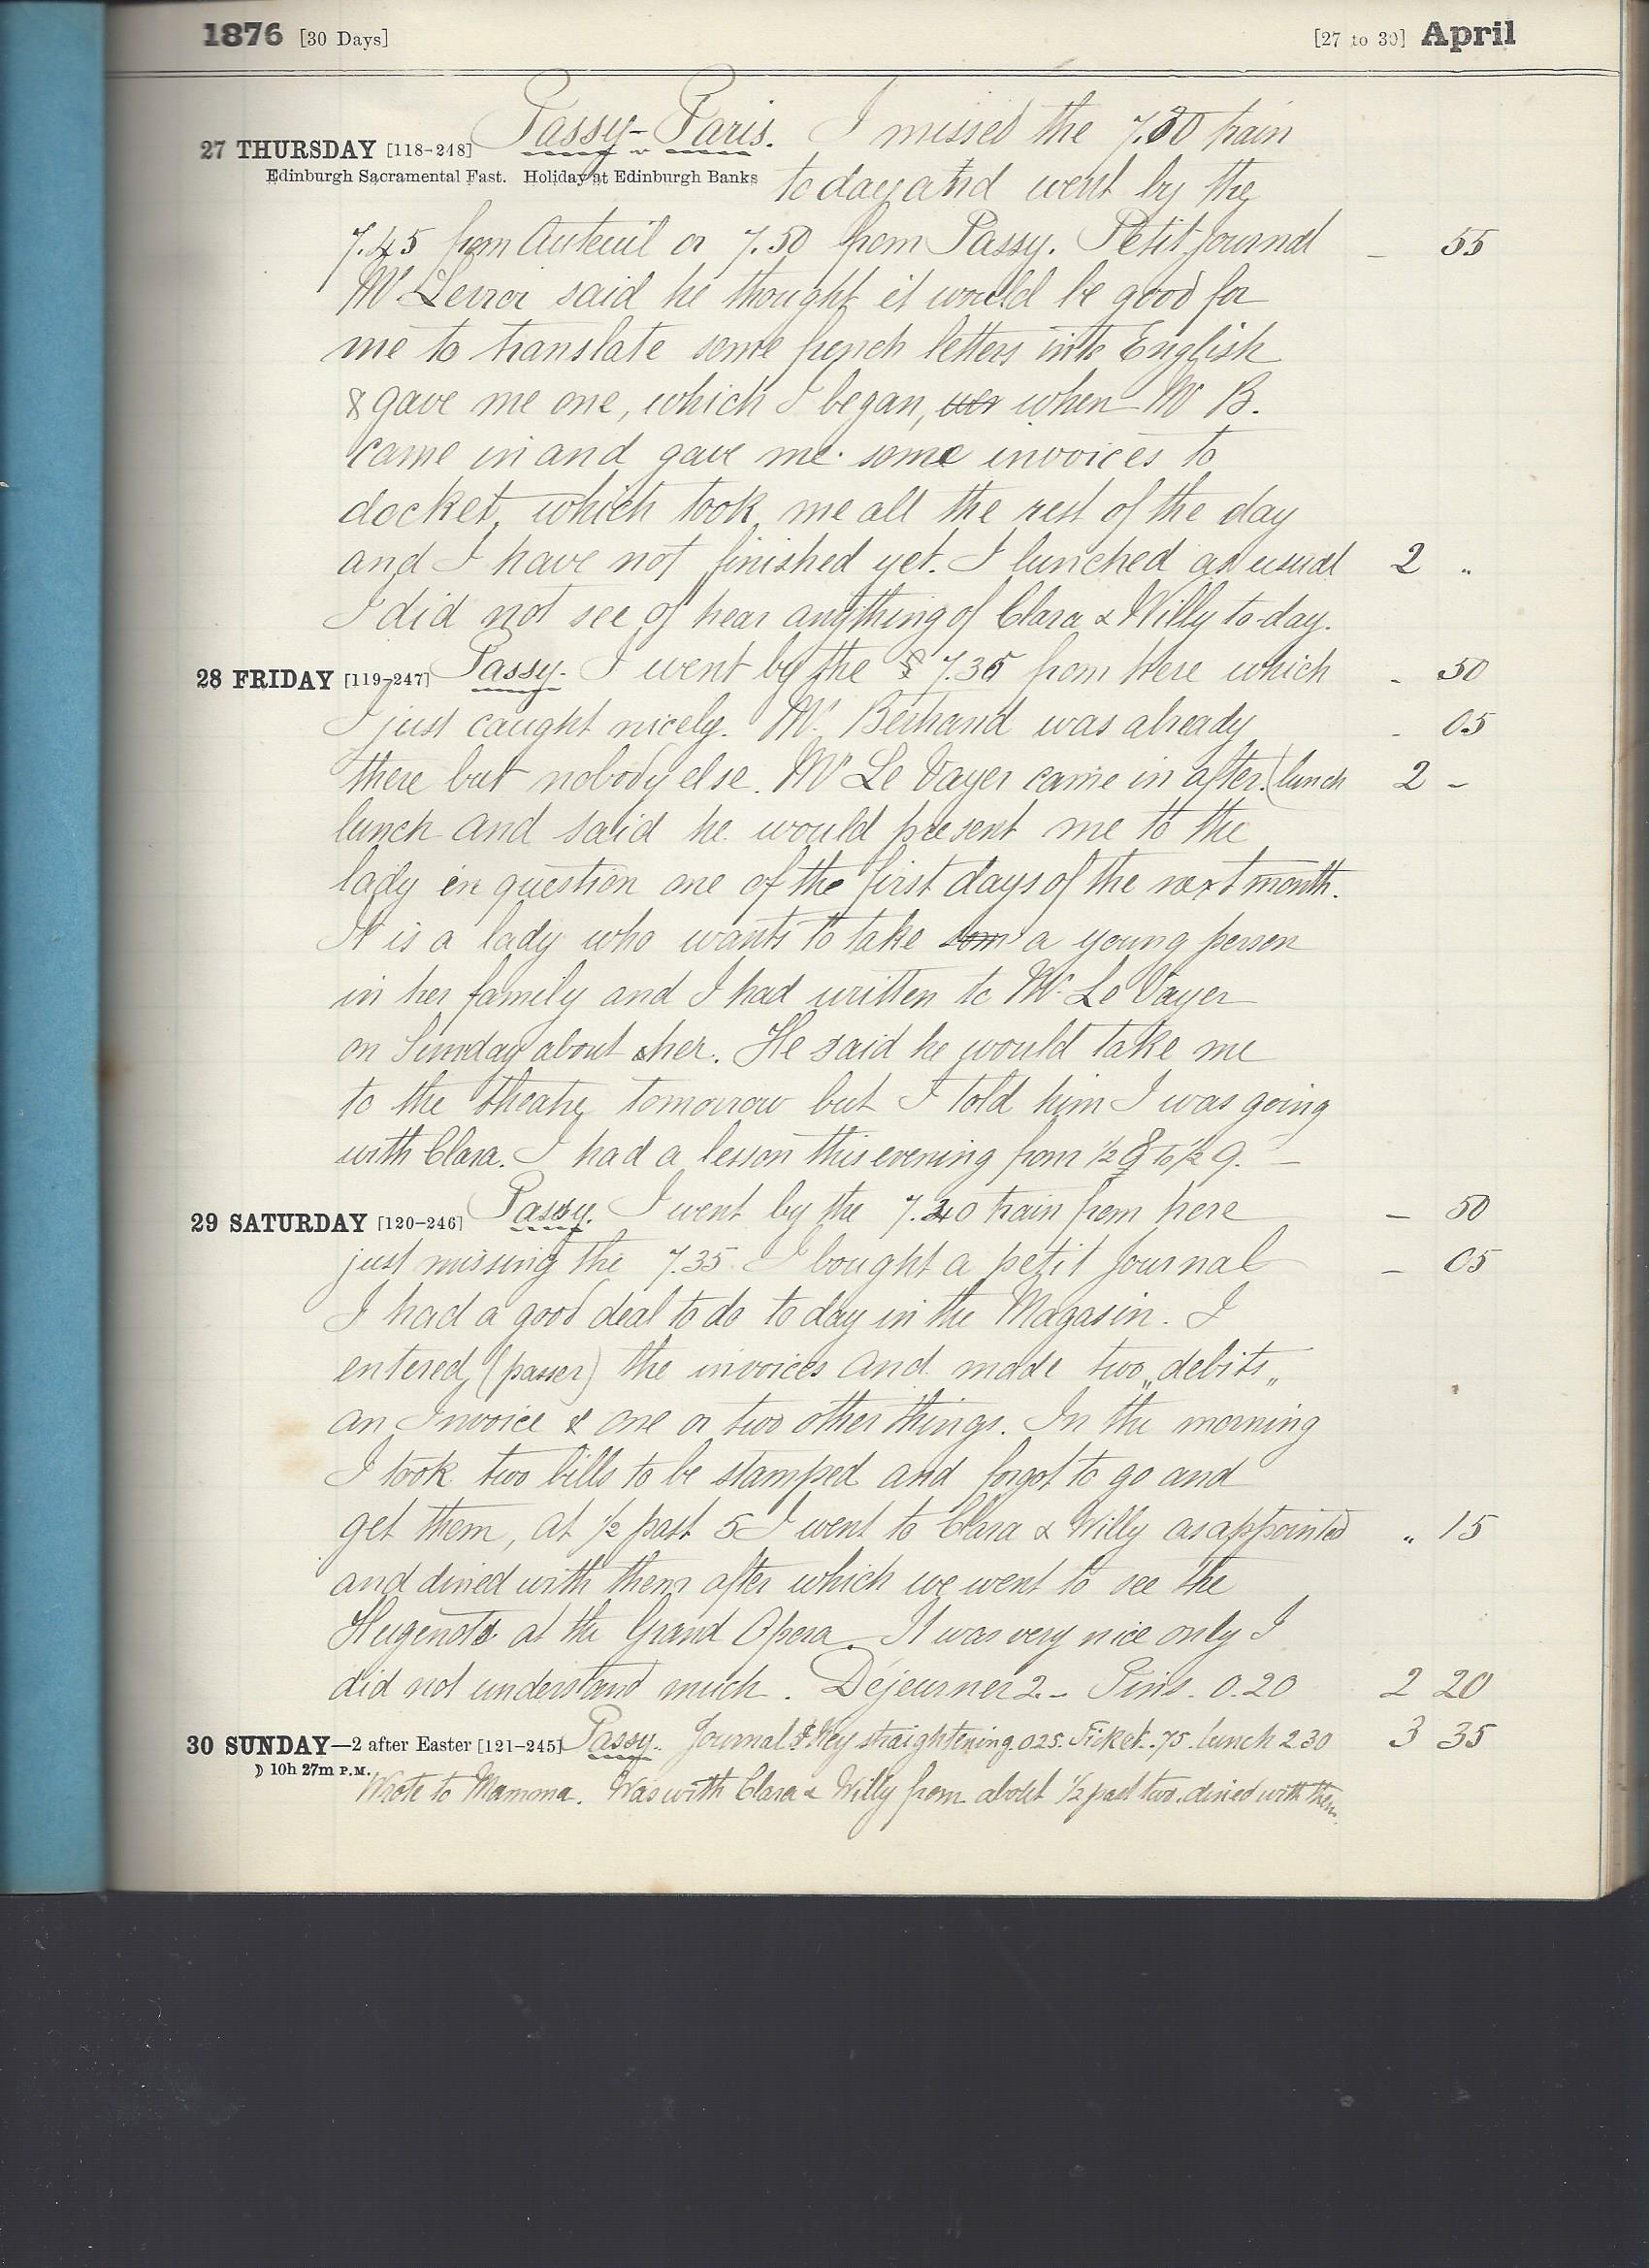 1876 [30 Days] [27 to 30] April
27 THURSDAY [118-248] Passy-Paris. I missed the 7.30 train
Edinburgh Sacramental Fast. Holiday at Edinburgh Banks to day and went by the
7.45 from Auteuil or 7.50 from Passy. Petit Journal - 55
Mr said he thought it would be good for
me to translate some french letters into English
& gave me one, which I began, when Mr B.
came in and gave me some invoices to
docket, which took me all the rest of the day
and I have not finished yet. I lunched as usual 2 "
I did not see or hear anything of Clara & Willy to-day.
28 FRIDAY [119-247] Passy. I went by the 7.35 from here which - 50
I just caught nicely. Mr. Bertrand was already - 05
there but nobody else. Mr Le Vayer came in after (lunch 2 -
lunch and said he would present me to the
lady in question one of the first days of the next month.
It is a lady who wants to take som a young person
in her family and I had written to Mr Le Vayer
on Sunday about her. He said he would take me
to the theatre tomorrow but I told him I was going
with Clara. I had a lesson this evening from ½ 8 to ½ 9. —
29 SATURDAY [120-246] Passy. I went by the 7.40 train from here - 50
just missing the 7.35. I bought a petit Journal - 05
I had a good deal to do to day in the Magasin. I
entered, (passer) the invoices and made two „debits„
an Invoice & one or two other things. In the morning
I took two bills to be stamped and forgot to go and
get them, at ½ past 5 I went to Clara & Willy as appointed " 15
and dined with them after which we went to see the
Hugenots at the Grand Opera. It was very nice only I
did not understand much. Déjeurner 2.- Pins. 0.20 2 20
30 SUNDAY—2 after Easter [121-245] Passy. Journal & Key straightening 0.25. Ticket .75. lunch 2 30 3 35
☽ 10h 27m P.M.
Wrote to Mamma. Was with Clara & Willy from about ½ past two. dined with them.